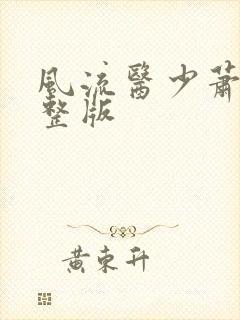 風流醫少蕭
整版
黄東升